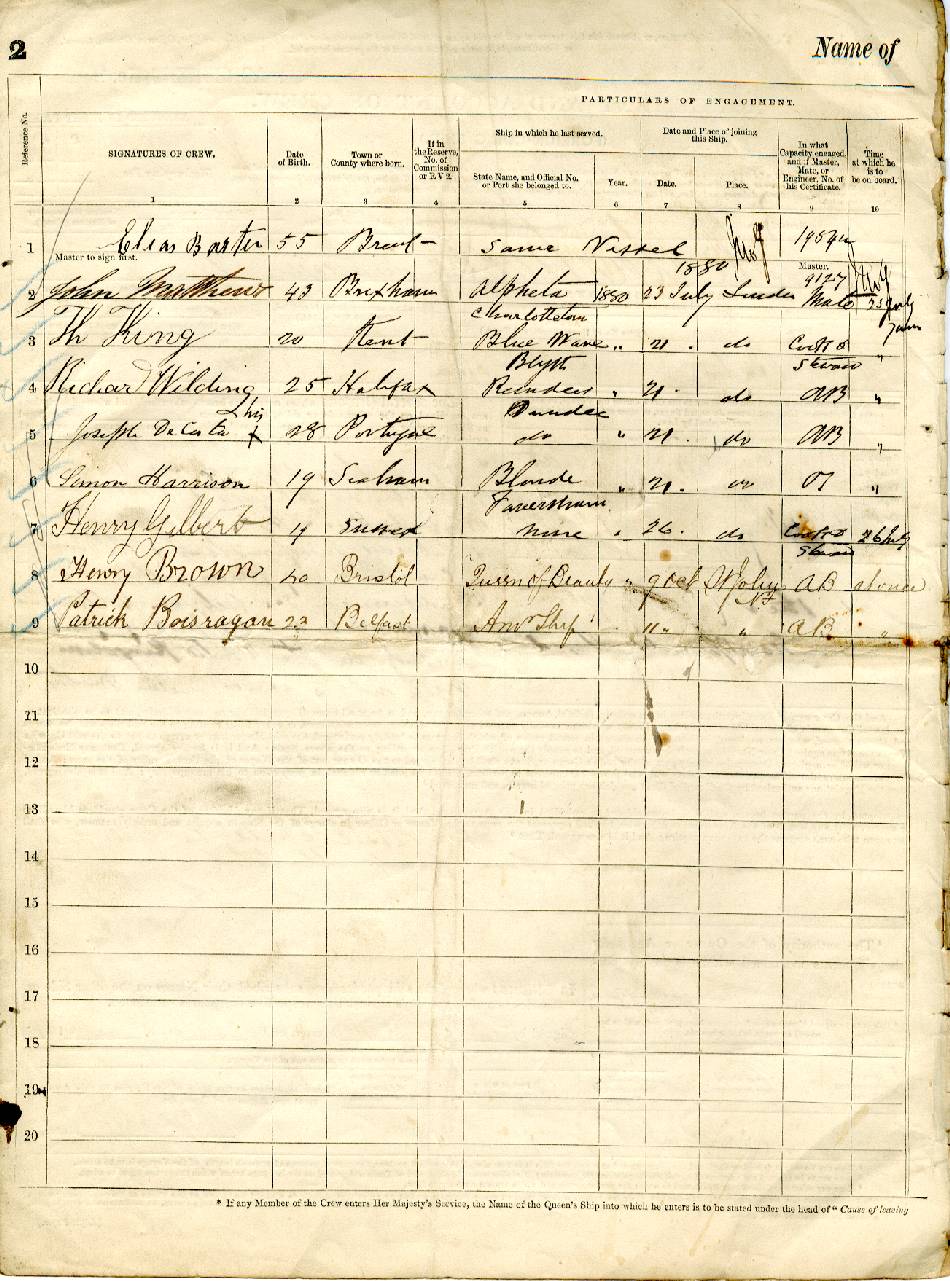 2 Name of
PARTICULARS OF ENGAGEMENT.
Reference No.
SIGNATURES OF CREW.
Date of Birth.
Town or County where born.
If in the Reserve, No. of Commission or R V 2.
Ship in which he last served.
State Name, and Official No. or Port she belonged to.
Year.
Date and Place of joining this Ship.
Date.
Place.
In what Capacity engaged, and if Master, Mate, or Engineer, No. of his Certificate.
Time at which he is to be on board.
1 2 3 4 5 6 7 8 9 10
1 Elias Baxter 55 Same Vessel 1880
Master to sign first. Master.
2 John Matthews 43 Brixham Alpheta 1880 23 July Mate
Charlotteton
3 Th King 20 Kent Blue Wave " 21 . do
Blyth
4 Richard Wilding 25 Halifax " 21 . do AB "
his Dundee
5 Joseph DaCosta X 28 Portugal do " 21 . do AB "
6 Simon Harrison 19 Seaham Blonde " 21 . do OS "
Faversham
7 Henry Gilbert Sussex None " 26 . do 26 July
8 Henry Brown 40 Bristol Queen of Beauty " 9 Oct St Johns AB at once
NF
9 Patrick Boisragon 22 Belfast Amn Ship 11 " " AB "
10
11
12
13
14
15
16
17
18
19
20
* If any Member of the Crew enters Her Majesty's Service, the Name of the Queen's Ship into which he enters is to be stated under the head of " Cause of leaving